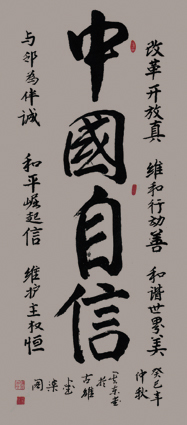 中國自信
改革开放真 维和行动善 和谐世界美
与邻為伴诚 和平崛起信 维护主权恒
癸巳年
仲秋